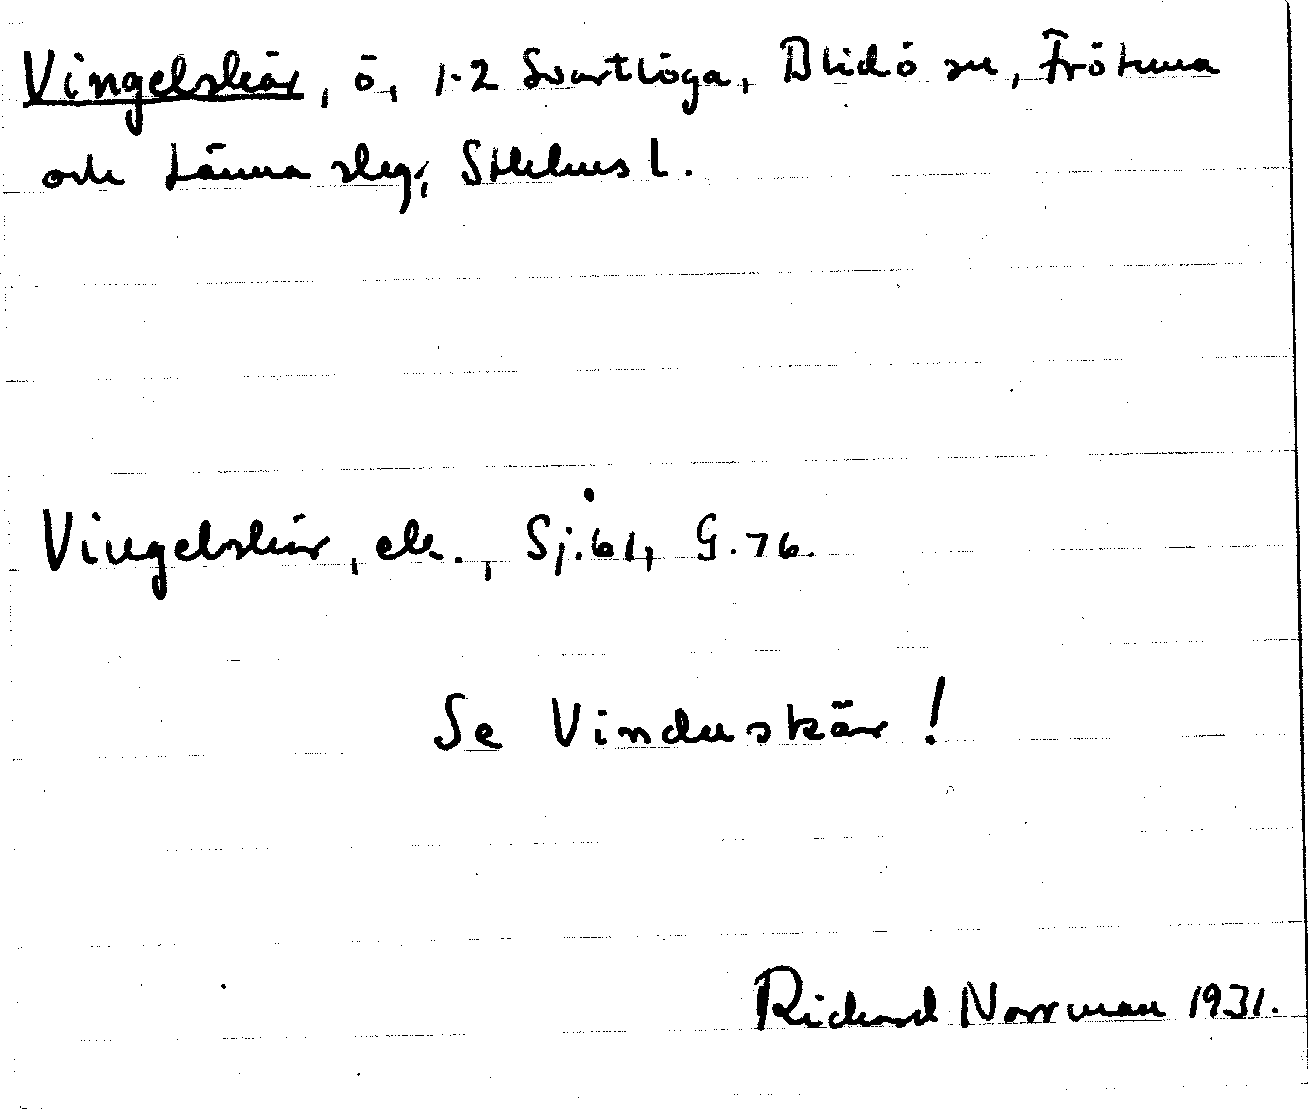 Vingelskär, ö, 1-2 Svartlöga, Blidö sn, Frötuna
och Länna slag, Sthlms l.
Vingelskär, ek., Sj.61, G.76.
Se Vinduskär!
Rickard Norrman 1931.